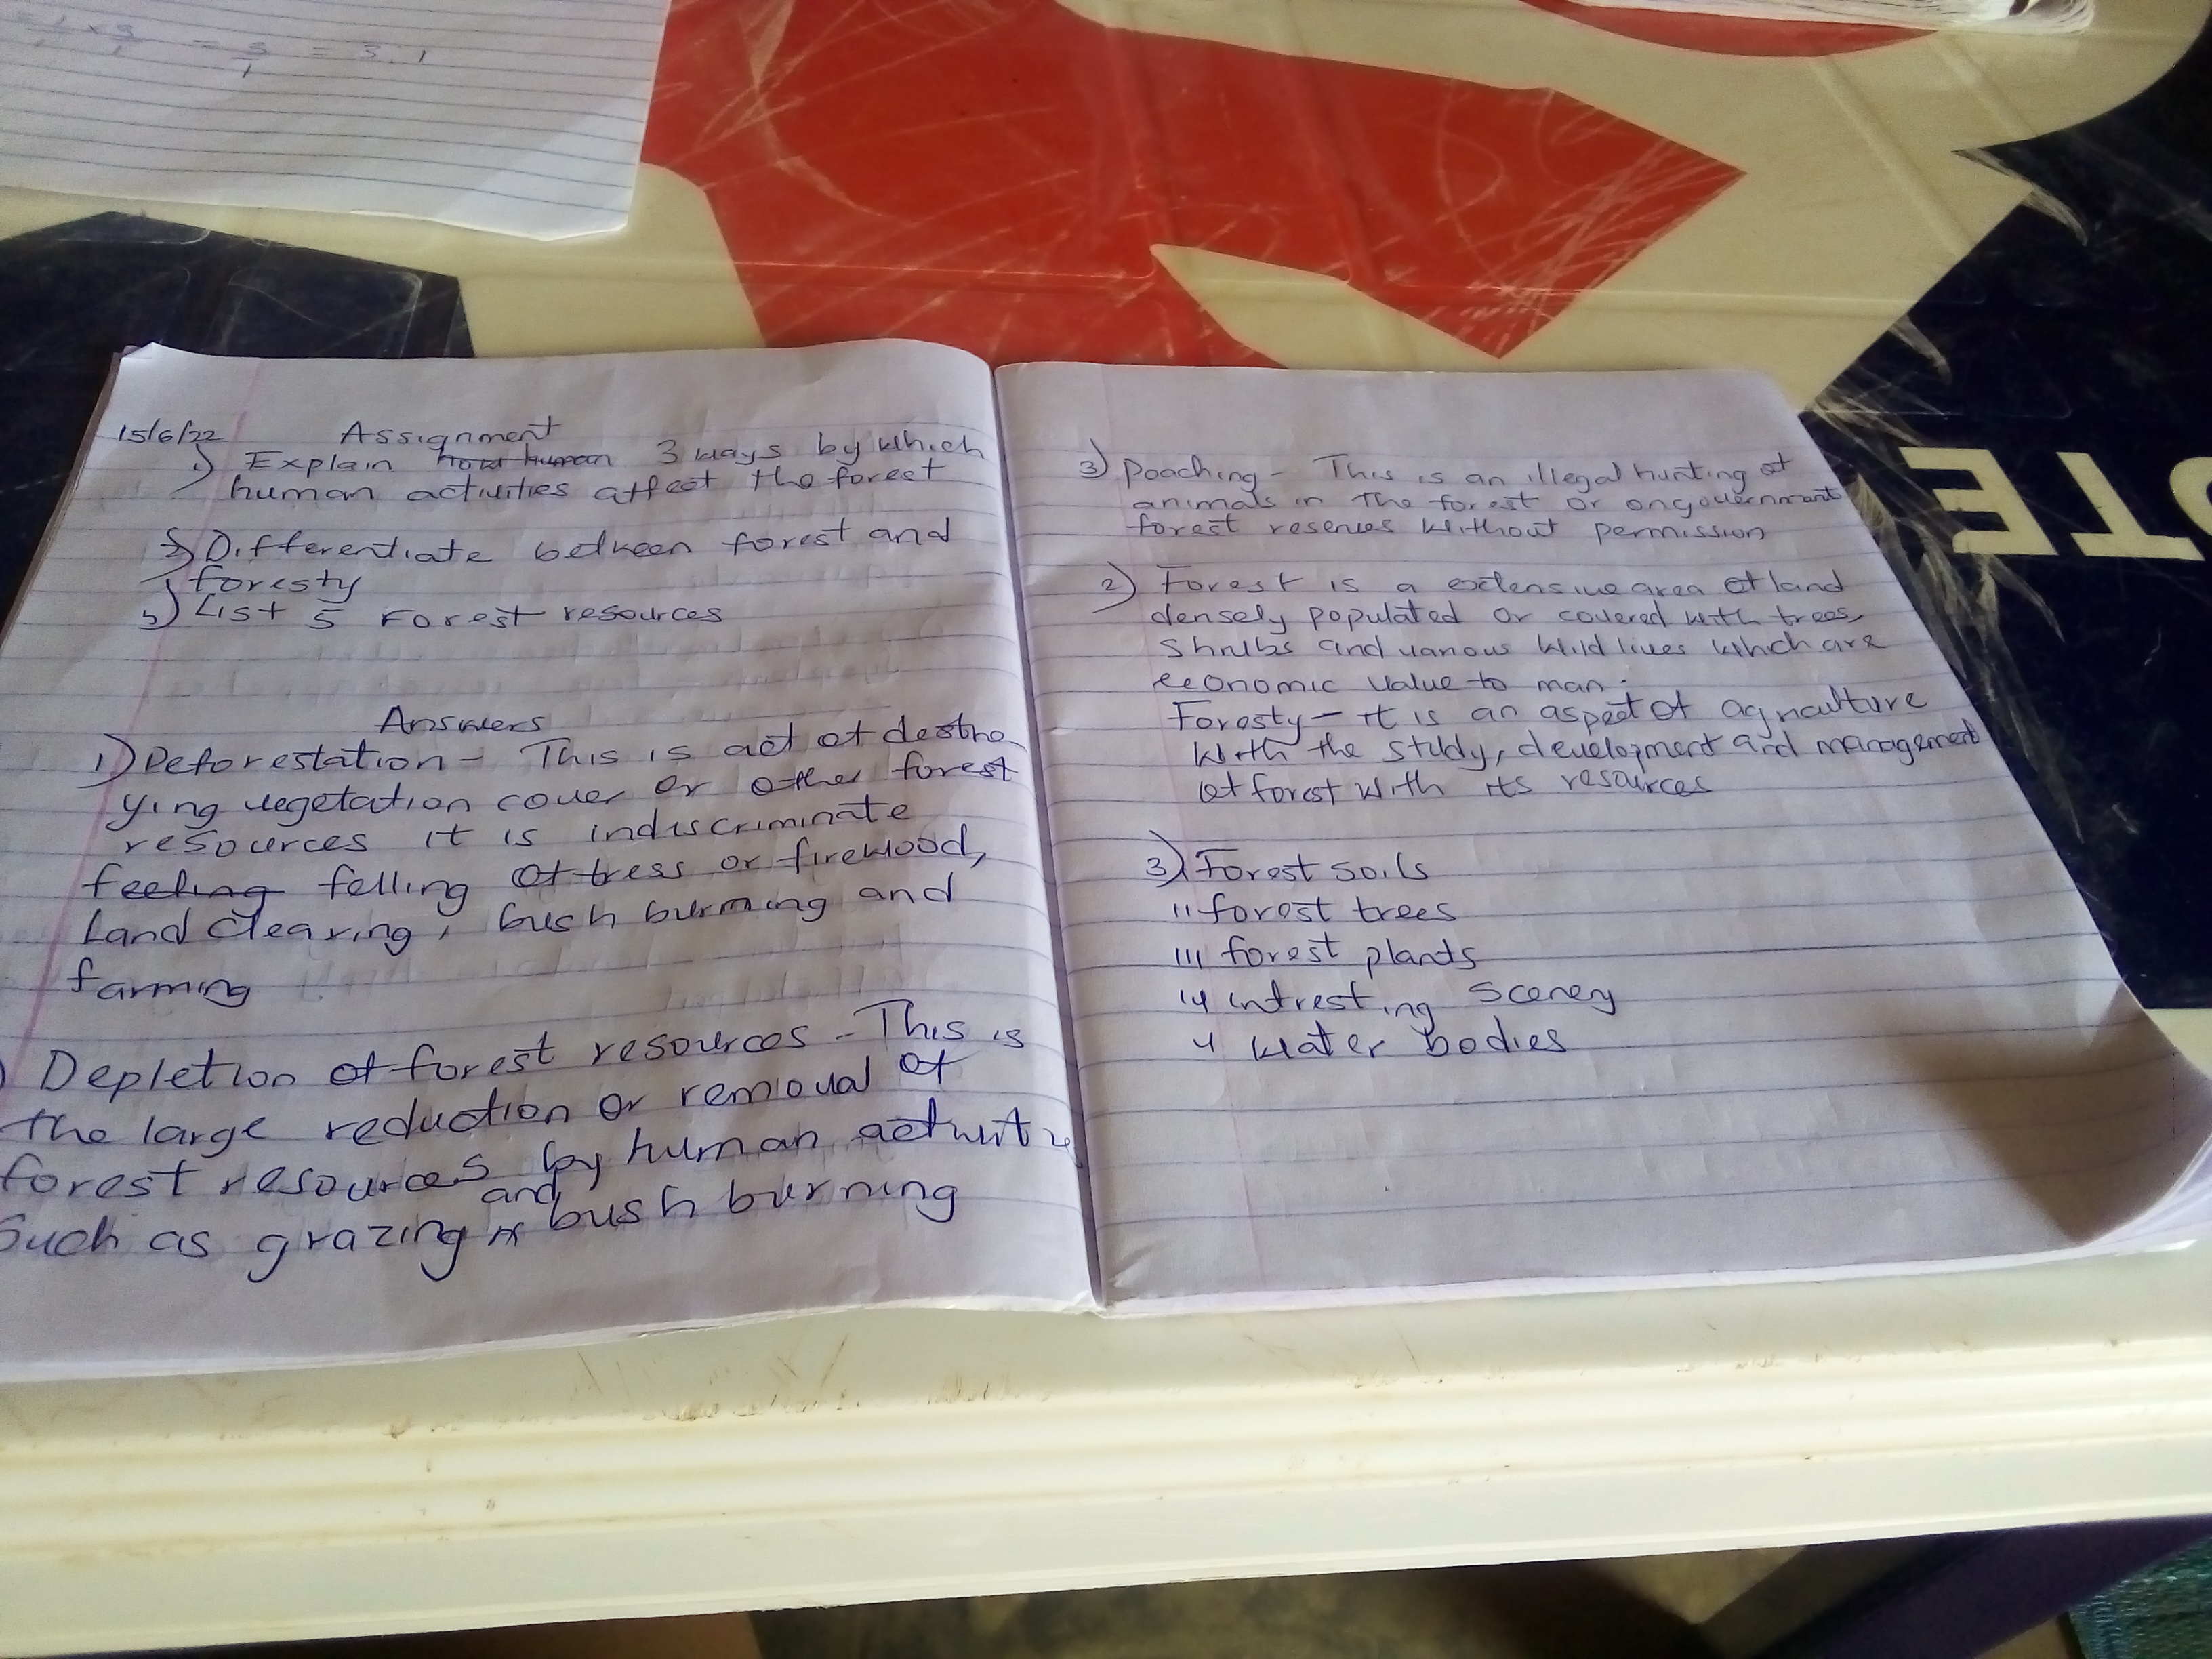 = 3:1
15/6/22 Assignment
1) Explain how human 3 ways by which
human activities affect the forest
2) Differentiate between forest and
foresty
3) List 5 Forest resources
Answers
1) Deforestation - This is act of destro
ying vegetation cover or other forest
resources it is indiscriminate
feeling felling of tress or firewood,
Land clearing, bush burning and
farming
) Depletion of forest resources - This is
the large reduction or removal of
forest resources by human activitie
Such as grazing and bush burning
3) Poaching - This is an illegal hunting of
animals in the forest or on government
forest reserves without permission
2) Forest is a extensive area of land
densely populated or covered with trees,
Shrubs and various wild lives which are
economic value to man.
Foresty - it is an aspect of agriculture
with the study, development and management
of forest with its resources
3) i Forest soils
ii forest trees
iii forest plants
iv intresting scenery
v water bodies
OTE